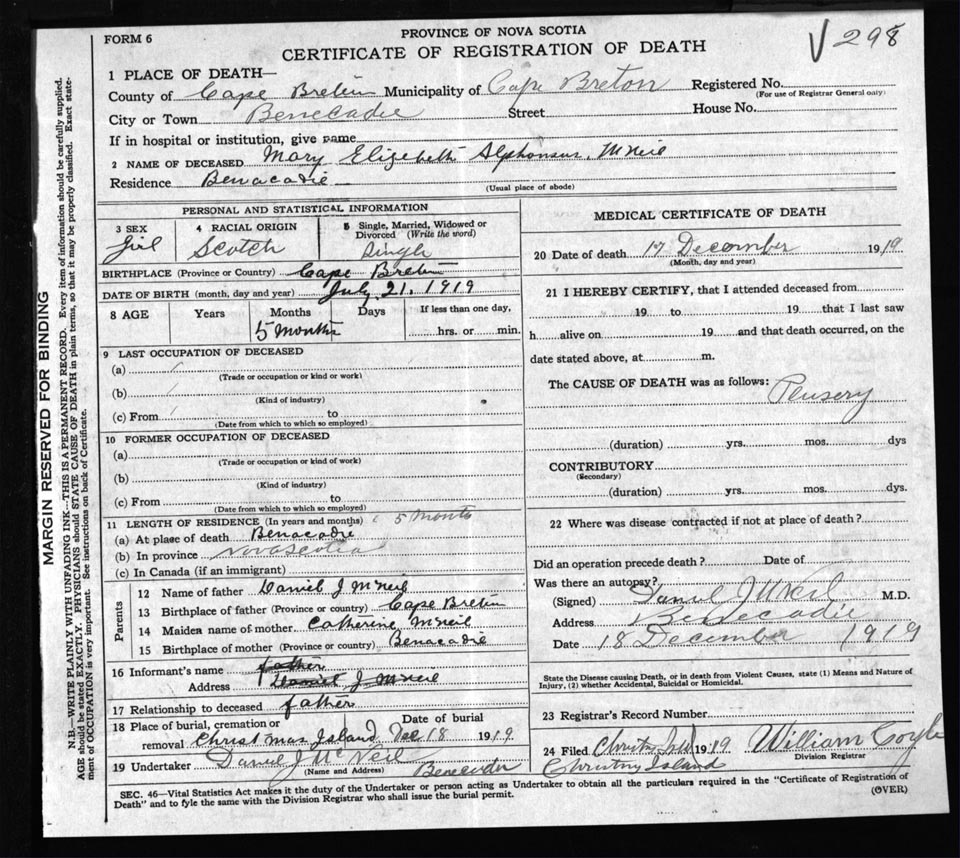 FORM 6
PROVINCE OF NOVA SCOTIA
CERTIFICATE OF REGISTRATION OF DEATH
V 298
1 PLACE OF DEATH—
County of Cape Breton Municipality of Cape Breton Registered No.
(For use of Registrar General only)
City or Town Benecadie Street House No.
If in hospital or institution, give name
2 NAME OF DECEASED Mary Elizebeth Alphonsus McNeil
Residence Benacadie
(Usual place of abode)
PERSONAL AND STATISTICAL INFORMATION
3 SEX 4 RACIAL ORIGIN 5 Single, Married, Widowed or Divorced (Write the word)
Girl Scotch Single
BIRTHPLACE (Province or Country) Cape Breton
DATE OF BIRTH (month, day and year) July 21, 1919
8 AGE Years Months Days If less than one day,
5 Months hrs. or min.
9 LAST OCCUPATION OF DECEASED
(a)
(Trade or occupation or kind or work)
(b)
(Kind of industry)
(c) From to
(Date from which to which so employed)
10 FORMER OCCUPATION OF DECEASED
(a)
(Trade or occupation or kind of work)
(b)
(Kind of industry)
(c) From to
(Date from which to which so employed)
11 LENGTH OF RESIDENCE (In years and months) 5 Months
(a) At place of death Benacadie
(b) In province Nova Scotia
(c) In Canada (if an immigrant)
Parents
12 Name of father Daniel J McNeil
13 Birthplace of father (Province or country) Cape Breton
14 Maiden name of mother Catherine McNeil
15 Birthplace of mother (Province or country) Benacadie
16 Informant's name father
Address Daniel J McNeil
17 Relationship to deceased father
18 Place of burial, cremation or removal Christmas Island Date of burial Dec 18 1919
19 Undertaker Daniel J McNeil
(Name and Address)
MEDICAL CERTIFICATE OF DEATH
20 Date of death 17 December 1919
(Month, day and year)
21 I HEREBY CERTIFY, that I attended deceased from
19 to 19 that I last saw
h alive on 19 and that death occurred, on the
date stated above, at m.
The CAUSE OF DEATH was as follows:
(duration) yrs. mos. dys
CONTRIBUTORY
(Secondary)
(duration) yrs. mos. dys.
22 Where was disease contracted if not at place of death?
Did an operation precede death? Date of
Was there an autopsy?
(Signed) Daniel J McNeil M.D.
Address Benecadie
Date 18 December 1919
State the Disease causing Death, or in death from Violent Causes, state (1) Means and Nature of
Injury, (2) whether Accidental, Suicidal or Homicidal.
23 Registrar's Record Number
24 Filed 1919 William Coyle
Division Registrar
Island
SEC. 46—Vital Statistics Act makes it the duty of the Undertaker or person acting as Undertaker to obtain all the particulars required in the "Certificate of Registration of
Death" and to fyle the same with the Division Registrar who shall issue the burial permit.
(OVER)
MARGIN RESERVED FOR BINDING
N.B.—WRITE PLAINLY WITH UNFADING INK—THIS IS A PERMANENT RECORD. Every item of information should be carefully supplied.
AGE should be stated EXACTLY. PHYSICIANS should STATE CAUSE OF DEATH in plain terms, so that it may be properly classified. Exact state-
ment of OCCUPATION is very important. See instructions on back of Certificate.